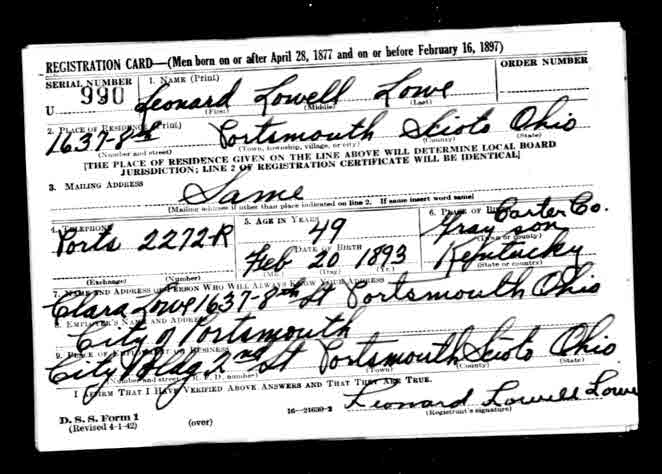 REGISTRATION CARD—(Men born on or after April 28, 1877 and on or before February 16, 1897)
SERIAL NUMBER 1. NAME (Print) ORDER NUMBER
U 990 Leonard Lowell Lowe
(First) (Middle) (Last)
2. PLACE OF RESIDENCE (Print)
1637-8th Portsmouth Scioto Ohio
(Number and street) (Town, township, village, or city) (County) (State)
[THE PLACE OF RESIDENCE GIVEN ON THE LINE ABOVE WILL DETERMINE LOCAL BOARD
JURISDICTION; LINE 2 OF REGISTRATION CERTIFICATE WILL BE IDENTICAL]
3. MAILING ADDRESS
Same
(Mailing address if other than place indicated on line 2. If same insert word same)
4. TELEPHONE 5. AGE IN YEARS 6. PLACE OF BIRTH
49 Carter Co.
Ports 2272-R DATE OF BIRTH Grayson
(Town or county)
Feb 20 1893 Kentucky
(Exchange) (Number) (Mo.) (Day) (Yr.) (State or country)
7. NAME AND ADDRESS OF PERSON WHO WILL ALWAYS KNOW YOUR ADDRESS
Clara Lowe 1637-8th St Portsmouth Ohio
8. EMPLOYER'S NAME AND ADDRESS
City of Portsmouth
9. PLACE OF EMPLOYMENT OR BUSINESS
City Bldg 2nd St Portsmouth Scioto Ohio
(Number and street or R. F. D. number) (Town) (County) (State)
I AFFIRM THAT I HAVE VERIFIED ABOVE ANSWERS AND THAT THEY ARE TRUE.
Leonard Lowell Lowe
D. S. S. Form 1 16—21630-2 (Registrant's signature)
(Revised 4-1-42) (over)